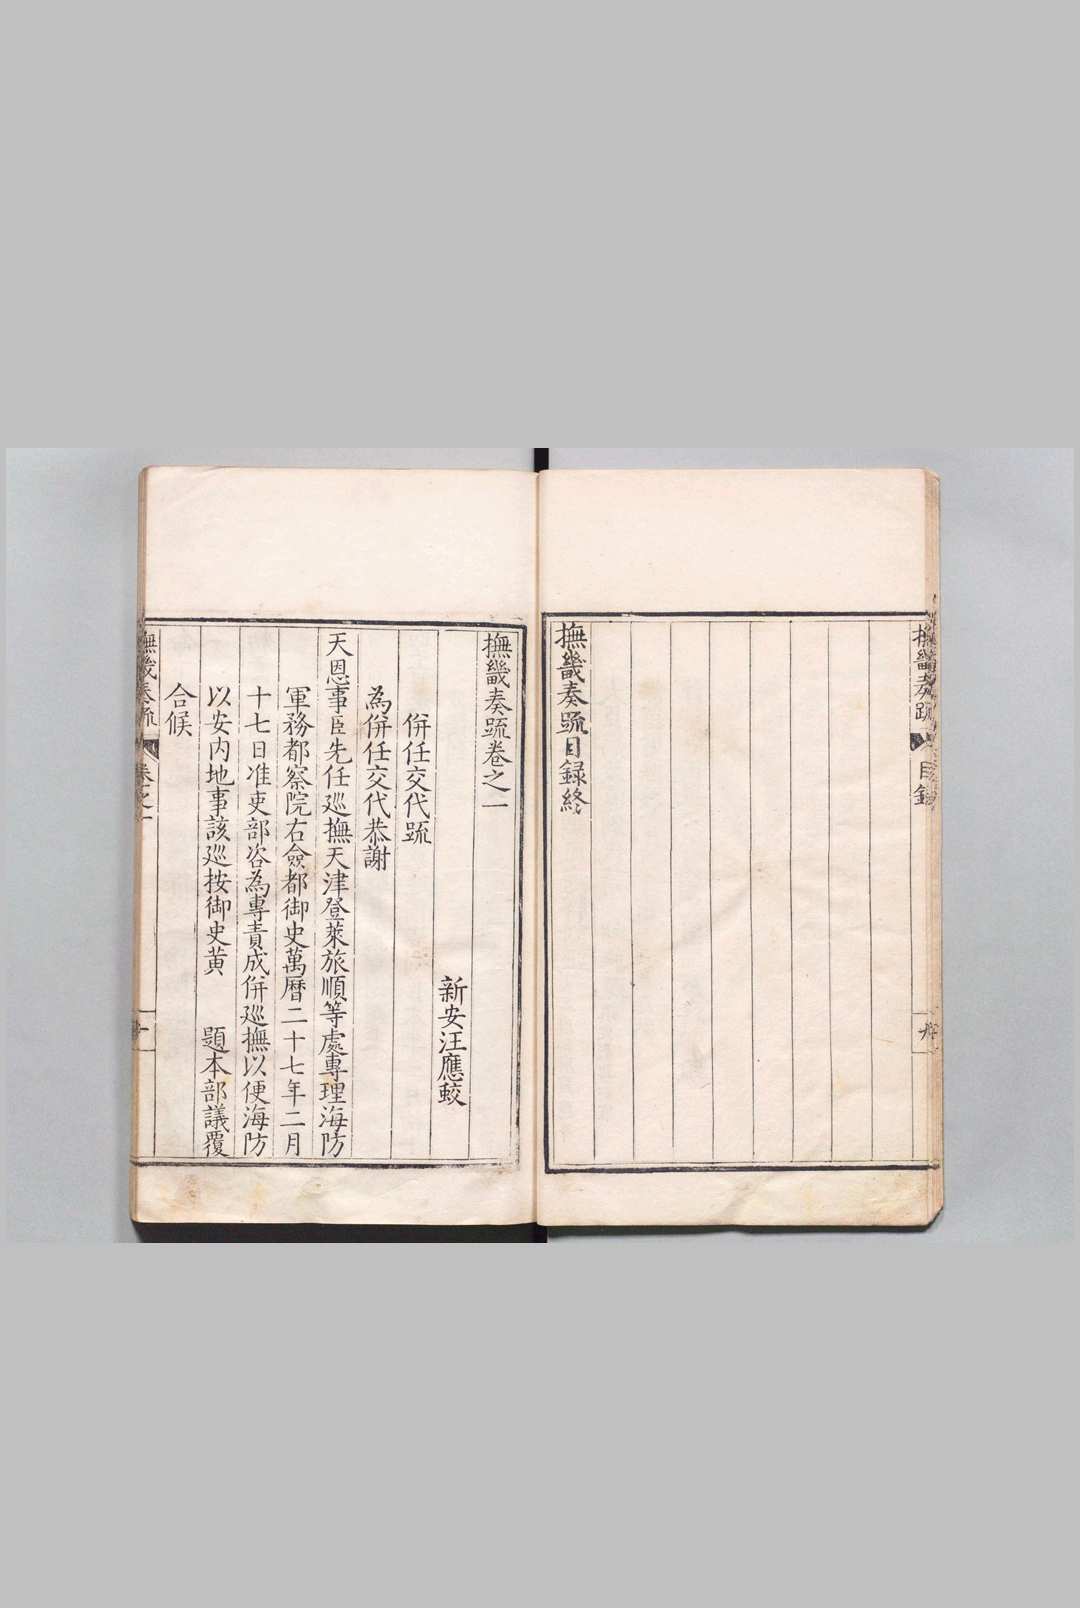 撫畿奏疏 目錄
撫畿奏疏目錄終
撫畿奏疏卷之一
新安汪應蛟
併任交代疏
為併任交代恭謝
天恩事臣先任巡撫天津登萊旅順等處專理海防
軍務都察院右僉都御史萬曆二十七年二月
十七日准吏部咨為專責成併巡撫以便海防
以安内地事該巡按御史黄 題本部議覆
合候
撫畿奏疏 卷之一